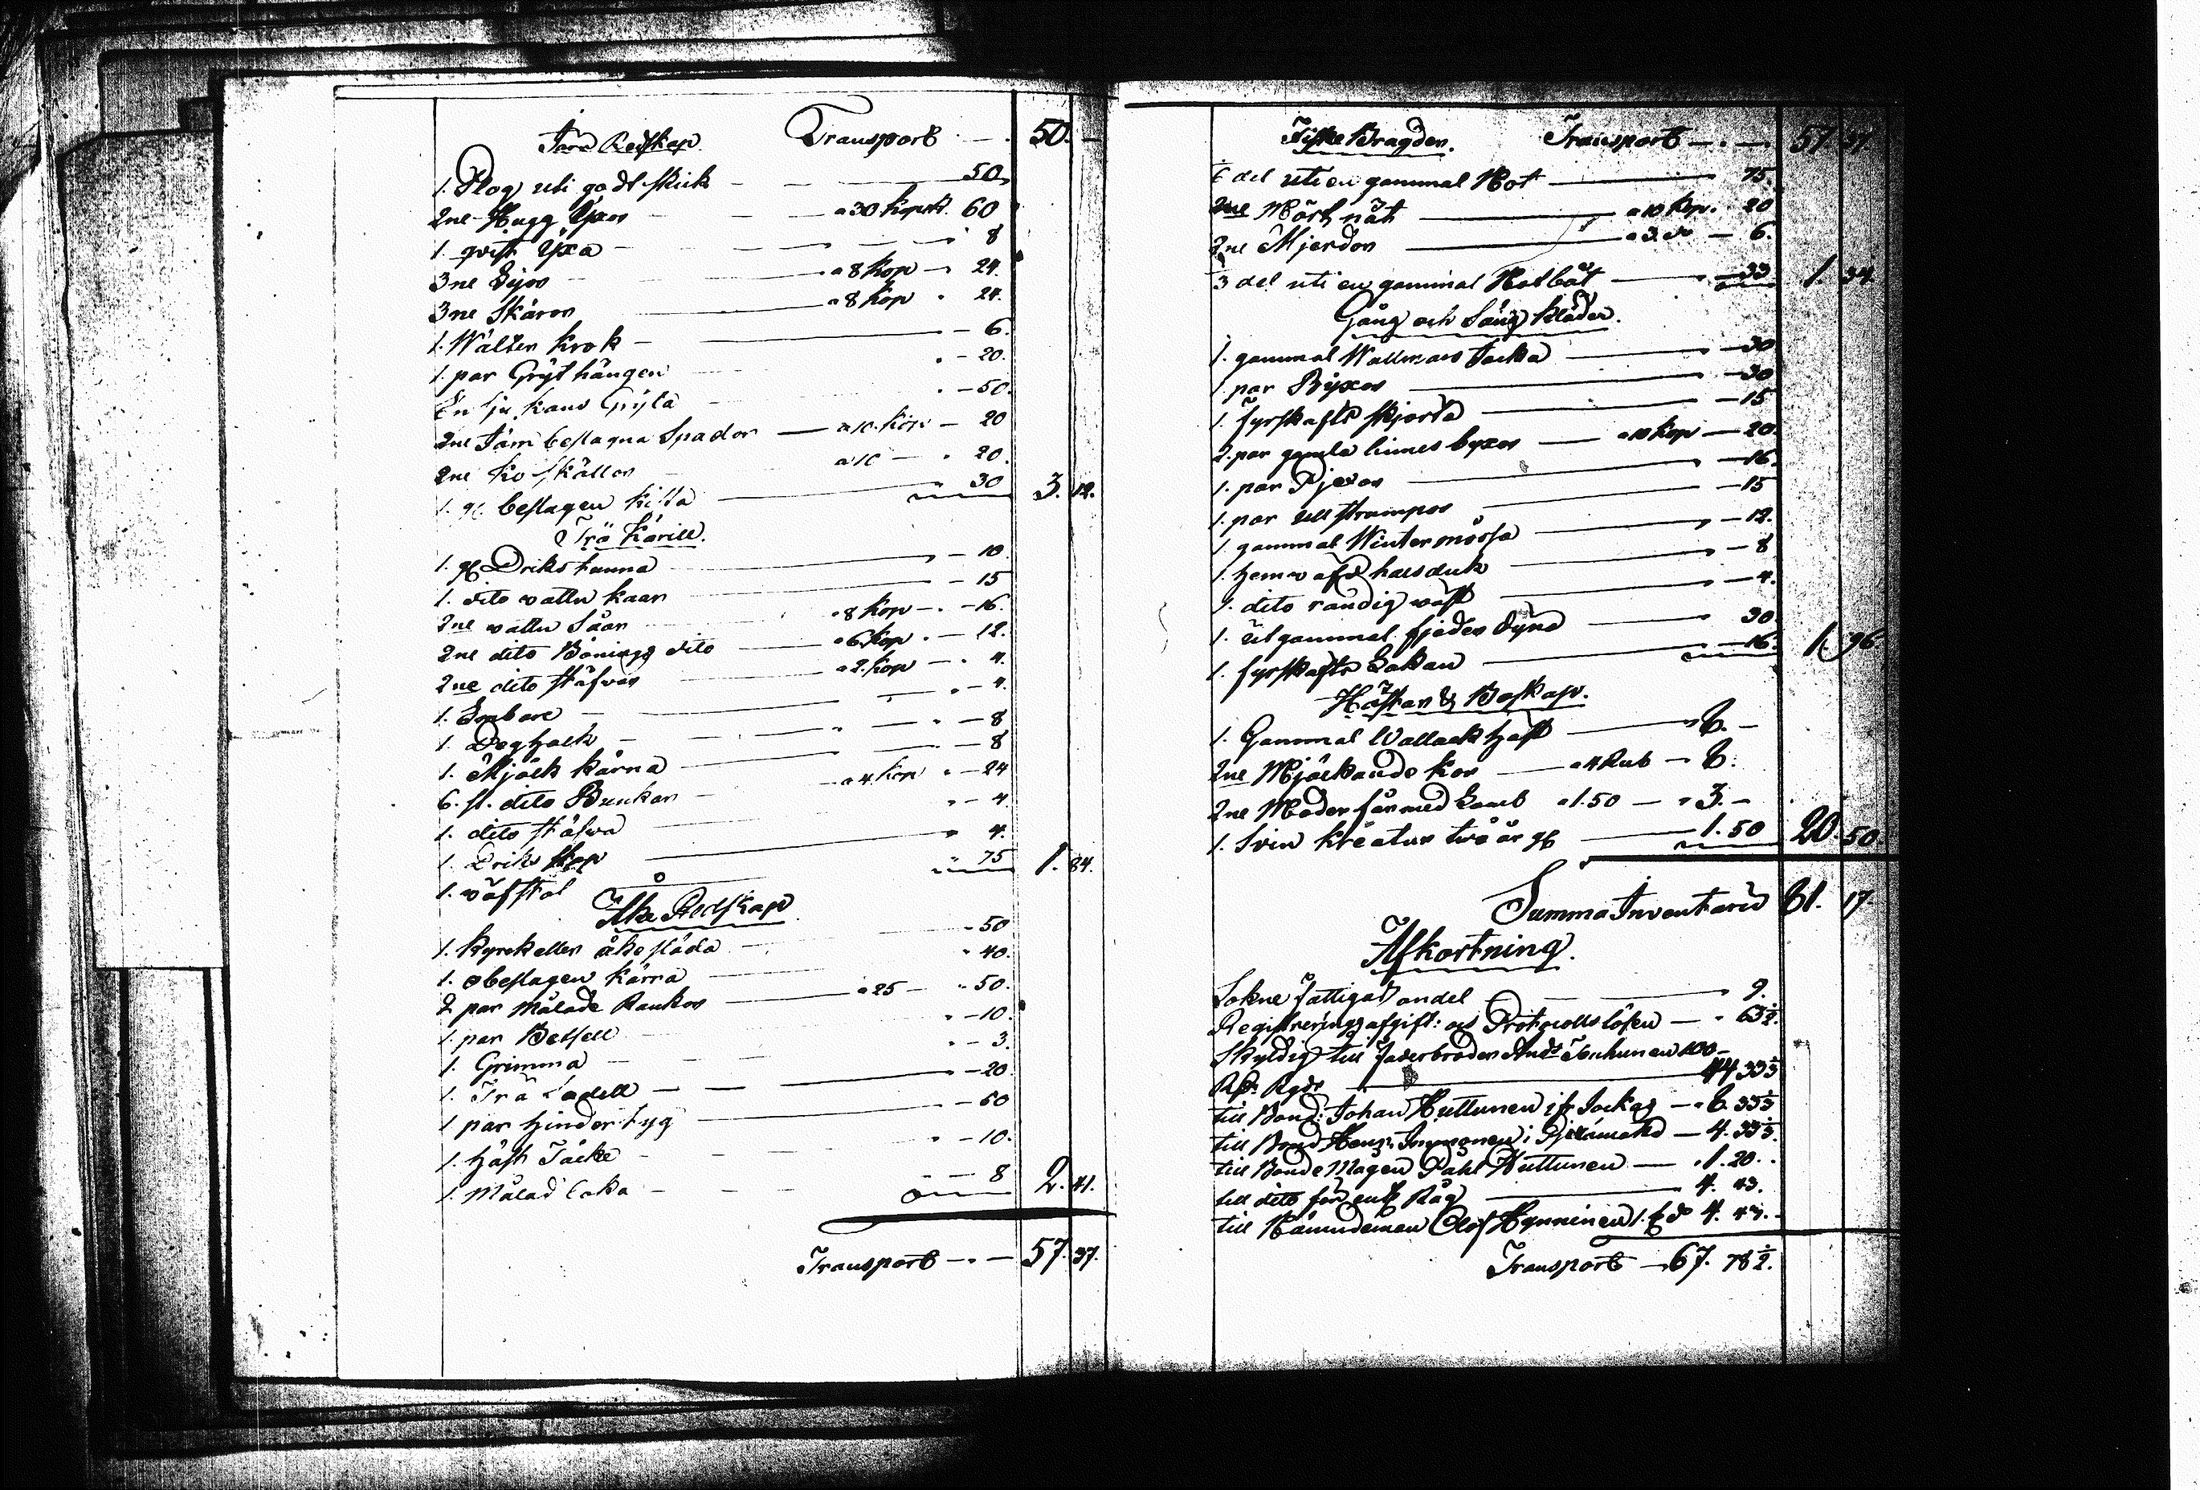 Järn Redskap. Transport - - 50. -
1. Plog uti godt skick - - 50
2ne Hugg Yxor - - a 30 Kopek 60
1. qvist Yxa - - - 8
3ne Lijor - a 8 Kop - 24.
3ne Skäror a 8 Kop - 24.
1. Wälter krok - - 6.
1. par Gryt hängen - 20.
En kans Gryta - 50.
2ne Järn beslagna Spador - a 10. Kop - 20
2ne Ko skällor a 10 - 20.
1. gl. beslagen kista 30 3. 12.
Trä Kärill.
1. gl Driks kanna - 10.
1. dito vattu kaar - 15
2ne vattu Såar a 8 Kop - - 16.
2ne dito Bönings dito a 6 Kop. - 12.
2ne dito stäfvor a 2. Kop - 4.
1. Embare - - 4.
1. Deghock - - 8
1. Mjölk kärna - 8
6. st. dito Bunkar - a 4 Kop - 24
1. dito stäfva - 4
1. Driks stop 4.
1. väfstol 75 1. 84.
Åke Redskap
1. Kyrck eller åke släda - 50
1. obeslagen kärra - 40.
2 par Målade Rankor a 25 - 50.
1. par Betsell - 10.
1. Grimma - 3.
1. Trä sadell - 20
1 par hinder tyg - 60
1. häst Täcke - 10.
1. Målad Loka - 8 2. 41.
Transport - - 57. 37.
Fiske Bragder. Transport - - 57. 37.
del uti en gammal Not 75.
2ne Mört nät a 10 Kop. 20
2ne Mjerdor a 3. do - 6.
1/3 del uti en gammal Notbåt - 33 1. 34.
Gång och Säng Kläder.
1. gammal Wallmars Jacka - 30
1 par Byxor - 30
1. fyrskafts skjorta - 15
2. par gamla linnes byxor - a 10 Kop - 20.
1. par Pjexor - 16.
1. par ull strumpor - 15
1 gammal Winter mössa - 12.
1. hemväfd halsduk - 8
1. dito randig väst - 4.
1. utgammal fjäder dyna 30.
1. fyrskafts Lakan - 16. 1. 96.
Hästar & Boskap.
1. Gammal Wallack häst - 8. -
2ne Mjölkande kor - a 4 Rub - 8.
2ne Moder får med Lamb a 1.50 - 3. -
1. Svin kreatur två år gl - 1.50 20. 50.
Summa Inventarie 81. 17.
Afkortning.
Sokne fattigas andel - 9.
Registrerings afgift: och Protocolls lösen - 63 1/2.
Skyldig till Faderbroder And: 100 -
Rp: Rgds 44 33 1/3
till Bond: Johan Huttunen ifr - 8. 33 1/3
till Bond Henr: Immonen i - 4. 33 1/3.
till Bonde Mågen Påhl Huttunen - 1. 20.
till dito för Råg 4. 43.
till Nämndeman Olof Hynninen 1. do 4. 43.
Transport - 67. 78 1/2.